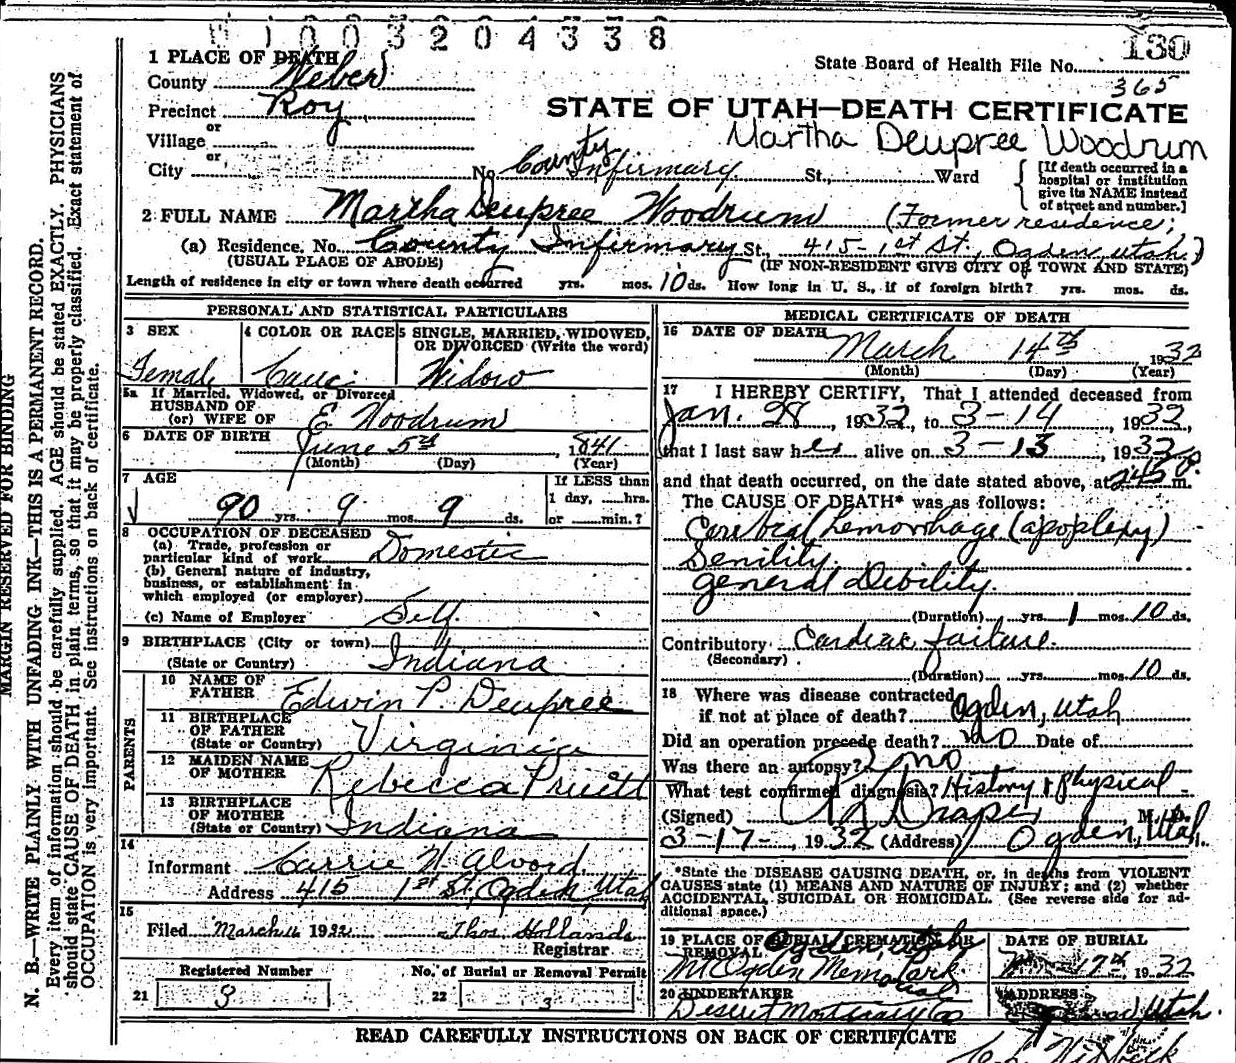 1003204338
130
1 PLACE OF DEATH
County Weber
State Board of Health File No.
365
Precinct Roy
STATE OF UTAH—DEATH CERTIFICATE
or
Village
Martha Deupree Woodrum
or
City No. County Infirmary St., Ward
[If death occurred in a hospital or institution give its NAME instead of street and number.]
2 FULL NAME Martha Deupree Woodrum (Former residence;
(a) Residence. No. County Infirmary St., 415-1st St, Ogden, Utah.)
(USUAL PLACE OF ABODE) (IF NON-RESIDENT GIVE CITY OR TOWN AND STATE)
Length of residence in city or town where death occurred yrs. mos. 10 ds. How long in U. S., if of foreign birth? yrs. mos. ds.
PERSONAL AND STATISTICAL PARTICULARS
3 SEX
Female
4 COLOR OR RACE
Cauc.
5 SINGLE, MARRIED, WIDOWED, OR DIVORCED (Write the word)
Widow
5a If Married, Widowed, or Divorced
HUSBAND OF
(or) WIFE OF E Woodrum
6 DATE OF BIRTH June 5th, 1841
(Month) (Day) (Year)
7 AGE
90 yrs. 9 mos. 9 ds.
If LESS than
1 day, hrs.
or min.?
8 OCCUPATION OF DECEASED
(a) Trade, profession or
particular kind of work Domestic
(b) General nature of industry,
business, or establishment in
which employed (or employer)
(c) Name of Employer Self
9 BIRTHPLACE (City or town)
(State or Country) Indiana
PARENTS
10 NAME OF FATHER Edwin P. Deupree
11 BIRTHPLACE OF FATHER
(State or Country) Virginia
12 MAIDEN NAME OF MOTHER Rebecca Pruett
13 BIRTHPLACE OF MOTHER
(State or Country) Indiana
14
Informant Carrie W. Alvord
Address 415 1st St, Ogden, Utah
15
Filed March 1932 Thos Hollands
Registrar
Registered Number
21 9
No. of Burial or Removal Permit
22 3
MEDICAL CERTIFICATE OF DEATH
16 DATE OF DEATH
March 14th 1932
(Month) (Day) (Year)
17 I HEREBY CERTIFY, That I attended deceased from
Jan. 28, 1932, to 3-14, 1932,
that I last saw her alive on 3-13, 1932
and that death occurred, on the date stated above, at 245 P. m.
The CAUSE OF DEATH* was as follows:
Cerebral hemorrhage (apoplexy)
Senility.
general Debility.
(Duration) yrs. 1 mos. 10 ds.
Contributory Cardiac failure.
(Secondary)
(Duration) yrs. mos. 10 ds.
18 Where was disease contracted
if not at place of death? Ogden, Utah
Did an operation precede death? no Date of
Was there an autopsy? no
What test confirmed diagnosis? History & physical
(Signed) Draper M. D.
3-17-, 1932 (Address) Ogden, Utah.
*State the DISEASE CAUSING DEATH, or, in deaths from VIOLENT
CAUSES state (1) MEANS AND NATURE OF INJURY; and (2) whether
ACCIDENTAL, SUICIDAL OR HOMICIDAL. (See reverse side for additional space.)
19 PLACE OF BURIAL, CREMATION, OR REMOVAL Ogden, Utah
Mt Ogden Memorial Park
DATE OF BURIAL
17th, 1932
20 UNDERTAKER
Deseret Mortuary Co
ADDRESS
Utah.
READ CAREFULLY INSTRUCTIONS ON BACK OF CERTIFICATE
MARGIN RESERVED FOR BINDING
N. B.—WRITE PLAINLY WITH UNFADING INK—THIS IS A PERMANENT RECORD.
Every item of information should be carefully supplied. AGE should be stated EXACTLY. PHYSICIANS
should state CAUSE OF DEATH in plain terms, so that it may be properly classified. Exact statement of
OCCUPATION is very important. See instructions on back of certificate.